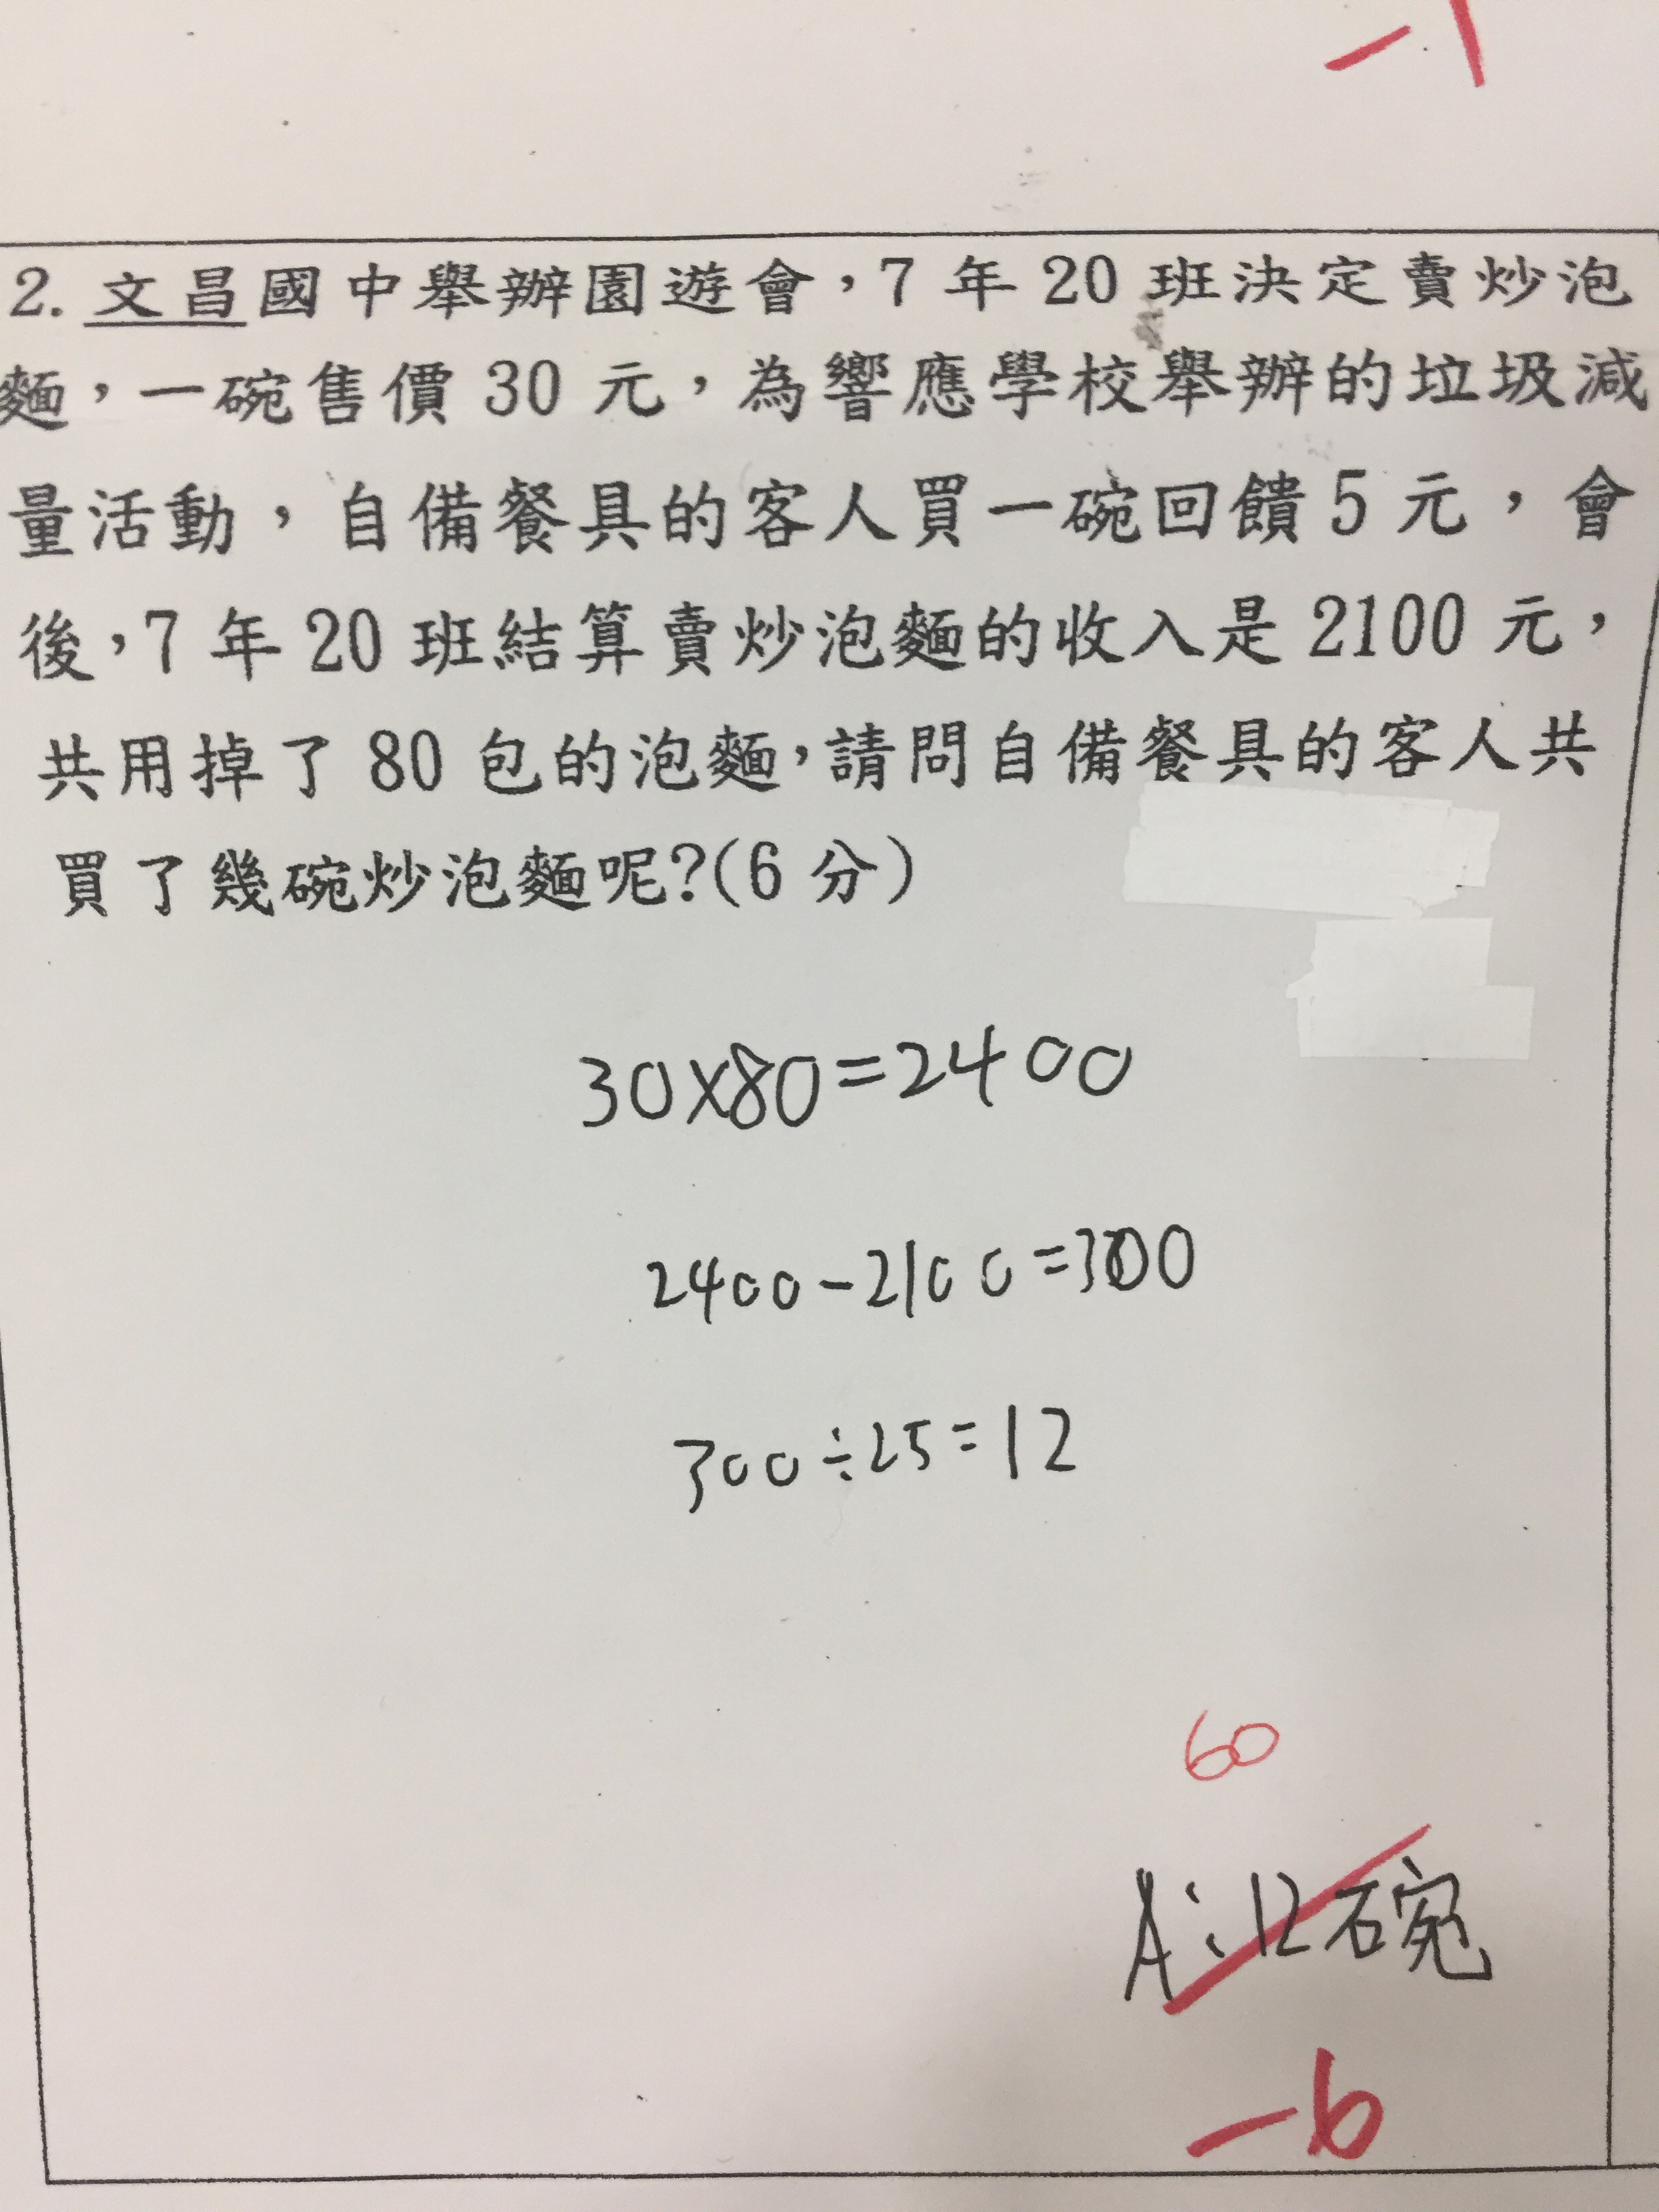 -1
2. 文昌國中舉辦園遊會，7 年 20 班決定賣炒泡
麵，一碗售價 30 元，為響應學校舉辦的垃圾減
量活動，自備餐具的客人買一碗回饋 5 元，會
後，7 年 20 班結算賣炒泡麵的收入是 2100 元，
共用掉了 80 包的泡麵，請問自備餐具的客人共
買了幾碗炒泡麵呢?(6 分)
30×80=2400
2400-2100=300
300÷25=12
60
A:12碗
-6